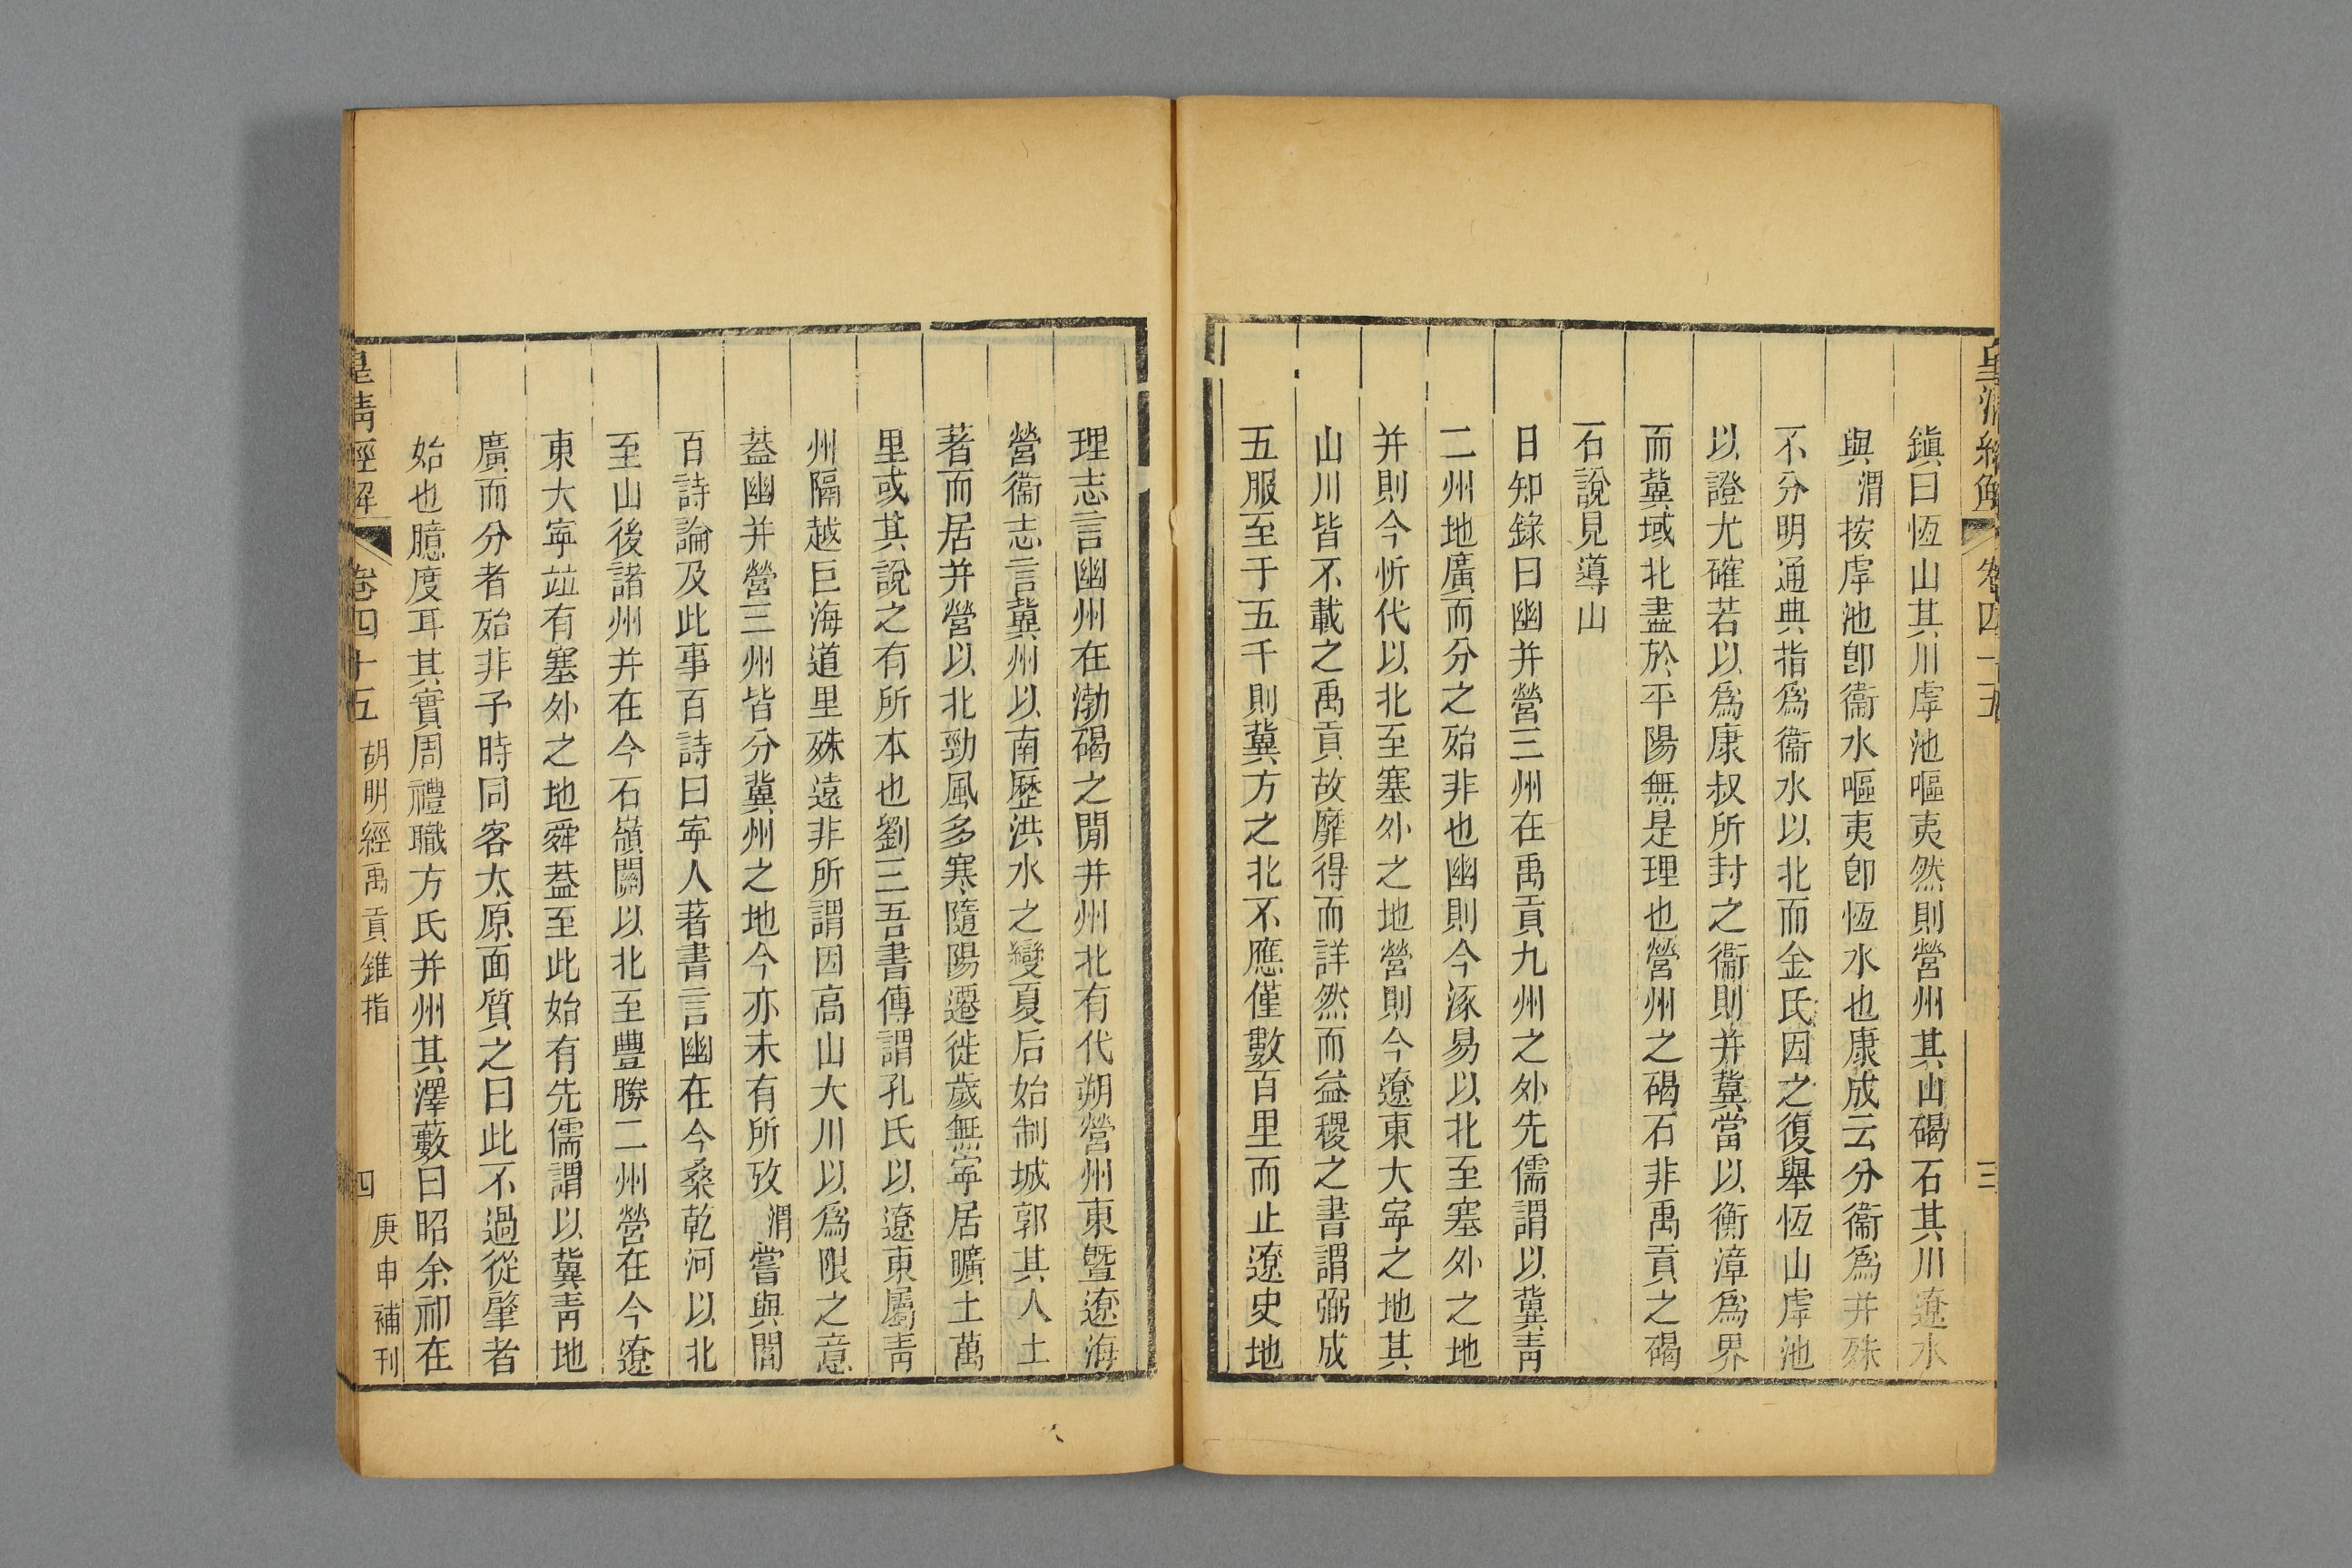 皇清經解 卷四十五 三
鎮曰恆山其川虖池嘔夷然則營州其山碣石其川遼水
與渭按虖池卽衞水嘔夷卽恆水也康成云分衞爲并殊
不分明通典指爲衞水以北而金氏因之復舉恆山虖池
以證尤確若以爲康叔所封之衞則并冀當以衡漳爲界
而冀域北盡於平陽無是理也營州之碣石非禹貢之碣
石說見導山
日知錄曰幽并營三州在禹貢九州之外先儒謂以冀靑
二州地廣而分之殆非也幽則今涿易以北至塞外之地
并則今忻代以北至塞外之地營則今遼東大寜之地其
山川皆不載之禹貢故靡得而詳然而益稷之書謂弼成
五服至于五千則冀方之北不應僅數百里而止遼史地
理志言幽州在渤碣之閒并州北有代朔營州東曁遼海
營衞志言冀州以南歷洪水之變夏后始制城郭其人土
著而居并營以北勁風多寒隨陽遷徙歲無寜居曠土萬
里或其說之有所本也劉三吾書傳謂孔氏以遼東屬靑
州隔越巨海道里殊遠非所謂因高山大川以爲限之意
蓋幽并營三州皆分冀州之地今亦未有所攷渭嘗與閻
百詩論及此事百詩曰寜人著書言幽在今桑乾河以北
至山後諸州并在今石嶺關以北至豐勝二州營在今遼
東大寜竝有塞外之地舜葢至此始有先儒謂以冀靑地
廣而分者殆非予時同客太原面質之曰此不過從肇者
始也臆度耳其實周禮職方氏并州其澤藪曰昭余祁在
皇清經解 卷四十五 胡明經禹貢錐指 四 庚申補刊